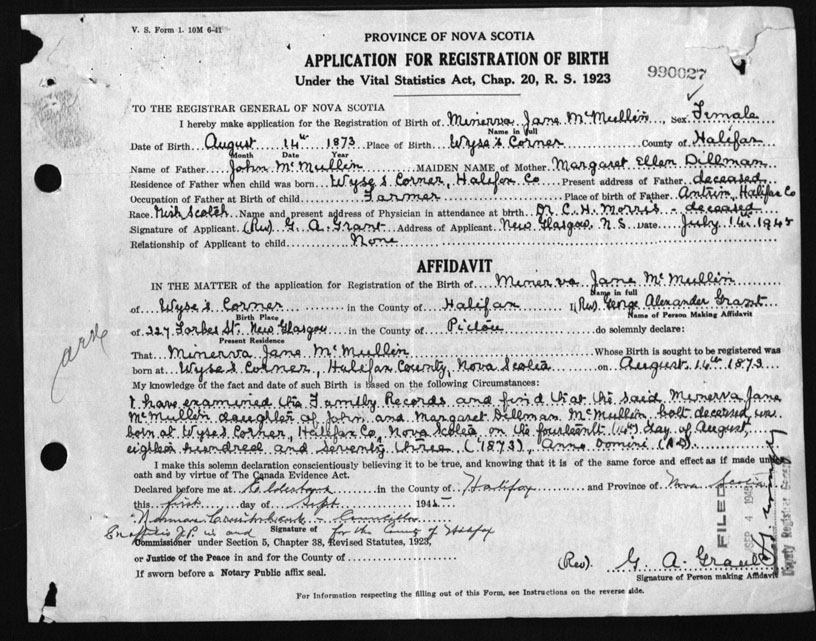 V. S. Form 1. 10M 6-41
PROVINCE OF NOVA SCOTIA
APPLICATION FOR REGISTRATION OF BIRTH
Under the Vital Statistics Act, Chap. 20, R. S. 1923
990027
TO THE REGISTRAR GENERAL OF NOVA SCOTIA
I hereby make application for the Registration of Birth of Minerva Jane McMullin Sex Female
Name in full
Date of Birth August 14th 1873 Place of Birth Wyse's Corner County of Halifax
Month Date Year
Name of Father John McMullin MAIDEN NAME of Mother Margaret Ellen Dillman
Residence of Father when child was born Wyse's Corner, Halifax Co Present address of Father deceased
Occupation of Father at Birth of child Farmer Place of birth of Father Antrim, Halifax Co
Race. Scotch Name and present address of Physician in attendance at birth Dr. C. H. Morris - deceased
Signature of Applicant (Rev) G. A. Grant Address of Applicant New Glasgow, N.S. Date July 14 1945
Relationship of Applicant to child None
AFFIDAVIT
IN THE MATTER of the application for Registration of the Birth of Minerva Jane McMullin
Name in full
of Wyse's Corner in the County of Halifax I (Rev) George Alexander Grant
Birth Place Name of Person Making Affidavit
of 227 Forbes St. New Glasgow in the County of Pictou do solemnly declare:
Present Residence
That Minerva Jane McMullin Whose Birth is sought to be registered was
born at Wyse's Corner, Halifax County, Nova Scotia on August 14th 1873
My knowledge of the fact and date of such Birth is based on the following Circumstances:
I have examined the Family Records and find that the said Minerva Jane
McMullin daughter of John and Margaret Dillman McMullin both deceased, was
born at Wyse's Corner, Halifax Co, Nova Scotia on the fourteenth (14th) day of August,
eighteen hundred and seventy three (1873), Anno Domini (A.D.)
I make this solemn declaration conscientiously believing it to be true, and knowing that it is of the same force and effect as if made under
oath and by virtue of The Canada Evidence Act.
Declared before me at in the County of Halifax and Province of Nova Scotia
this first day of Sept 1945
Signature of for the County of Halifax
Commissioner under Section 5, Chapter 38, Revised Statutes, 1923,
or Justice of the Peace in and for the County of
(Rev) G. A. Grant
If sworn before a Notary Public affix seal.
Signature of Person making Affidavit
For Information respecting the filling out of this Form, see Instructions on the reverse side.
FILED
SEP 4 1945
Deputy Registrar General